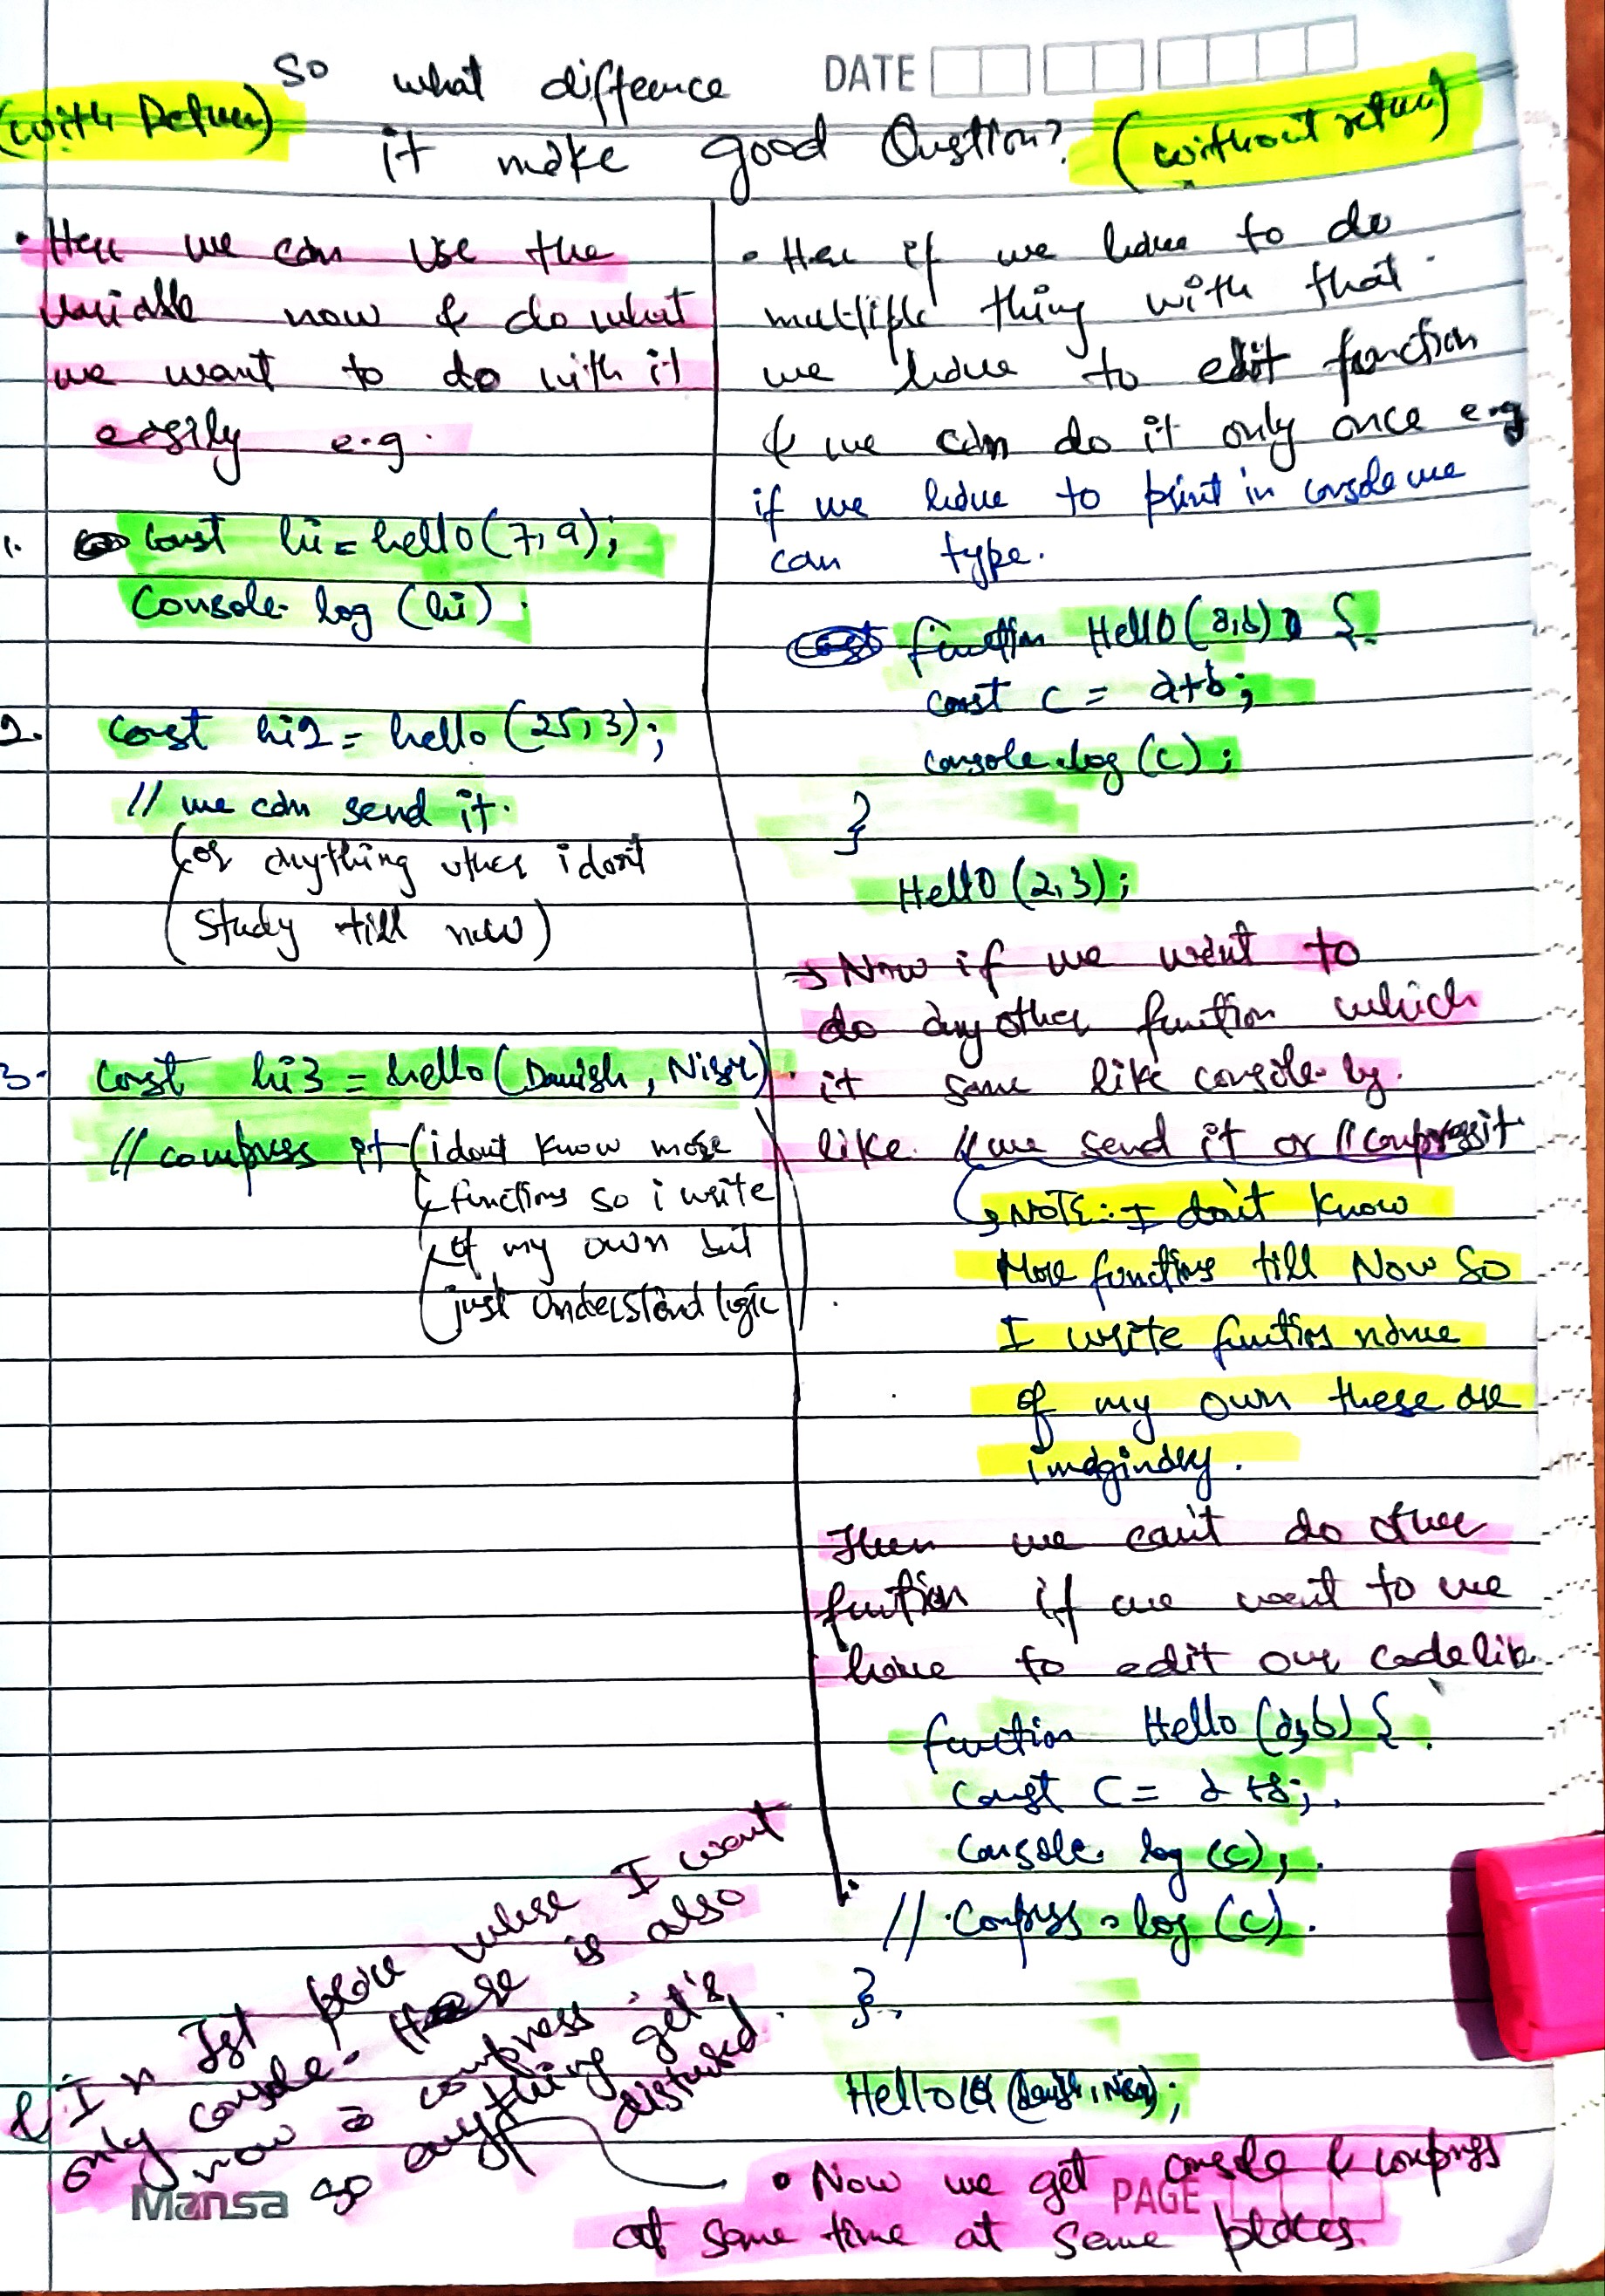 DATE
So what diffeence
(with Return) it make good Question? (without return)
• Here we can use the
variable now & do what
we want to do with it
easily e.g.
1. const hi = hello(7,9);
Console.log (hi).
2. const hi2 = hello (25,3);
// we can send it.
(or anything other i don't
study till now)
3. const hi3 = hello (Danish, Nisar)
// compress it (i dont know more
functions so i write
of my own but
just understand logic)
• Here if we have to do
multiple thing with that
we have to edit function
& we can do it only once e.g
if we have to print in console we
can type.
function Hello (a,b) {
const c = a+b;
console.log (c);
}
Hello (2,3);
→ Now if we want to
do any other function which
it same like console.log.
like // we send it or // compress it
NOTE: I don't know
More functions till Now So
I write function name
of my own these are
imaginary.
Then we can't do other
funtion if we want to we
have to edit our code lik
function Hello (a,b) {
const c = a+b;
Console.log (c);
// Compress.log (c).
}
Hello (Danish, Nisar);
• Now we get console & compress
at same time at same places.
& In Ist place where I want
only console. there is also
now a compress
so anything get's
disturbed.
Mansa
PAGE